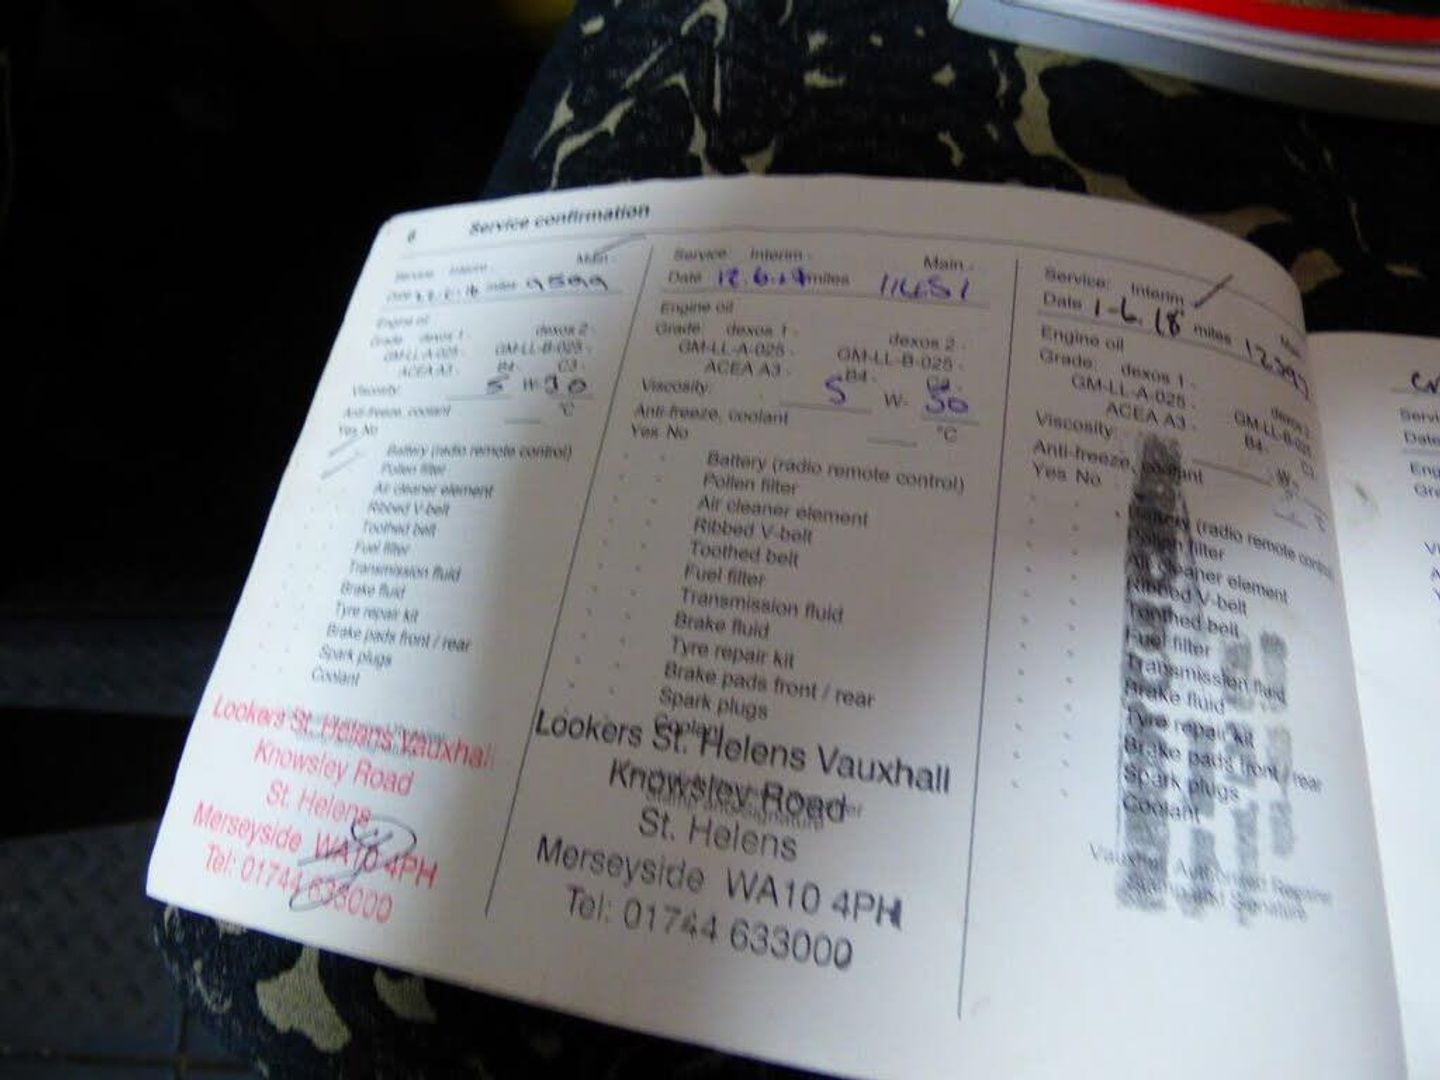 6 Service confirmation
Service: Interim - Main -
Date miles 9599
Engine oil
Grade: dexos 1 - dexos 2 -
GM-LL-A-025 - GM-LL-B-025 -
ACEA A3 - B4 - C3 -
Viscosity: 5 W- 30
Anti-freeze, coolant °C
Yes No
Battery (radio remote control)
Pollen filter
Air cleaner element
Ribbed V-belt
Toothed belt
Fuel filter
Transmission fluid
Brake fluid
Tyre repair kit
Brake pads front / rear
Spark plugs
Coolant
Lookers St. Helens Vauxhall
Knowsley Road
St. Helens
Merseyside WA10 4PH
Tel: 01744 633000
Service: Interim - Main -
Date 12.6.17 miles 11451
Engine oil
Grade: dexos 1 - dexos 2 -
GM-LL-A-025 - GM-LL-B-025 -
ACEA A3 - B4 - C3 -
Viscosity: 5 W- 30
Anti-freeze, coolant °C
Yes No
Battery (radio remote control)
Pollen filter
Air cleaner element
Ribbed V-belt
Toothed belt
Fuel filter
Transmission fluid
Brake fluid
Tyre repair kit
Brake pads front / rear
Spark plugs
Coolant
Lookers St. Helens Vauxhall
Knowsley Road
St. Helens
Merseyside WA10 4PH
Tel: 01744 633000
Service: Interim -
Date 1-6.18 miles
Engine oil
Grade: dexos 1 - dexos 2 -
GM-LL-A-025 - GM-LL-B-025
ACEA A3 - B4 - C3
Viscosity: W-
Anti-freeze, coolant °C
Yes No
Battery (radio remote control)
Pollen filter
Air cleaner element
Ribbed V-belt
Toothed belt
Fuel filter
Transmission fluid
Brake fluid
Tyre repair kit
Brake pads front / rear
Spark plugs
Coolant
Vauxhall Authorised Repairer
Signature
Servi
Date
Eng
Gra